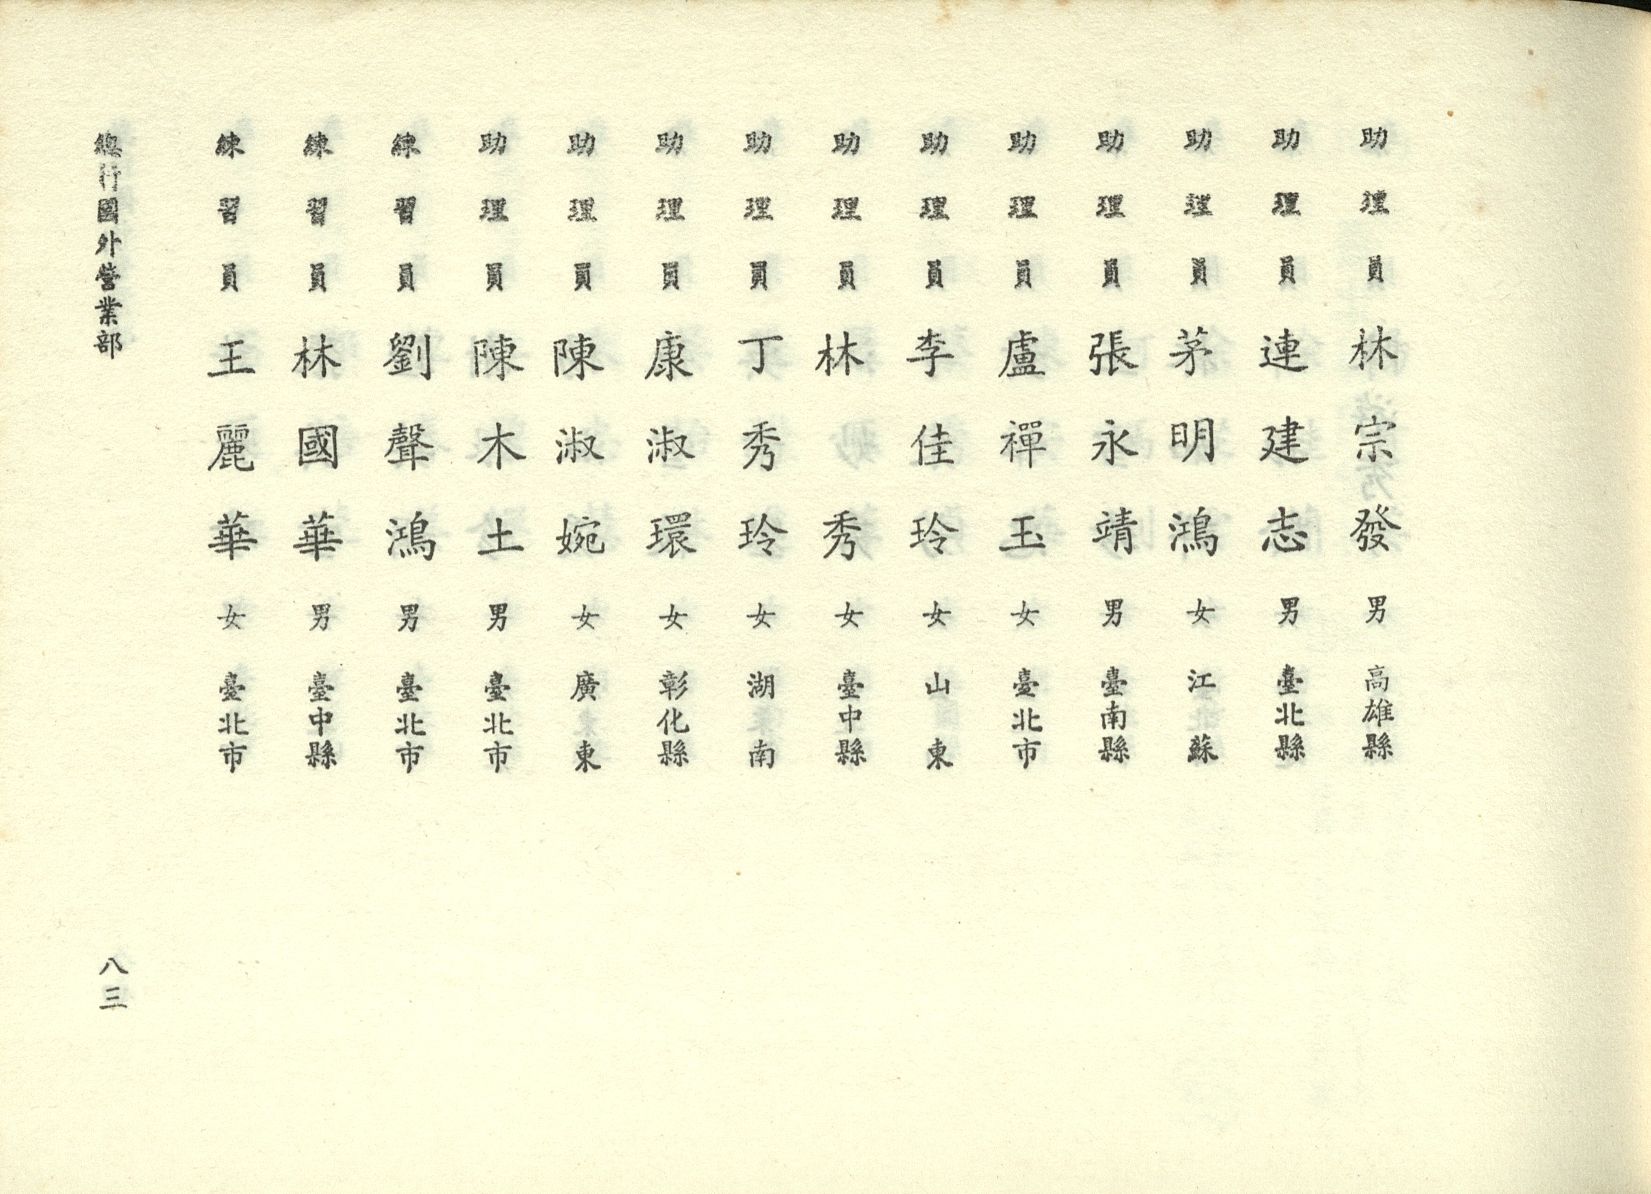 助理員 林宗發 男 高雄縣
助理員 連建志 男 臺北縣
助理員 茅明鴻 女 江蘇
助理員 張永靖 男 臺南縣
助理員 盧禪玉 女 臺北市
助理員 李佳玲 女 山東
助理員 林秀 女 臺中縣
助理員 丁秀玲 女 湖南
助理員 康淑環 女 彰化縣
助理員 陳淑婉 女 廣東
助理員 陳木土 男 臺北市
練習員 劉聲鴻 男 臺北市
練習員 林國華 男 臺中縣
練習員 王麗華 女 臺北市
總行國外營業部
八三